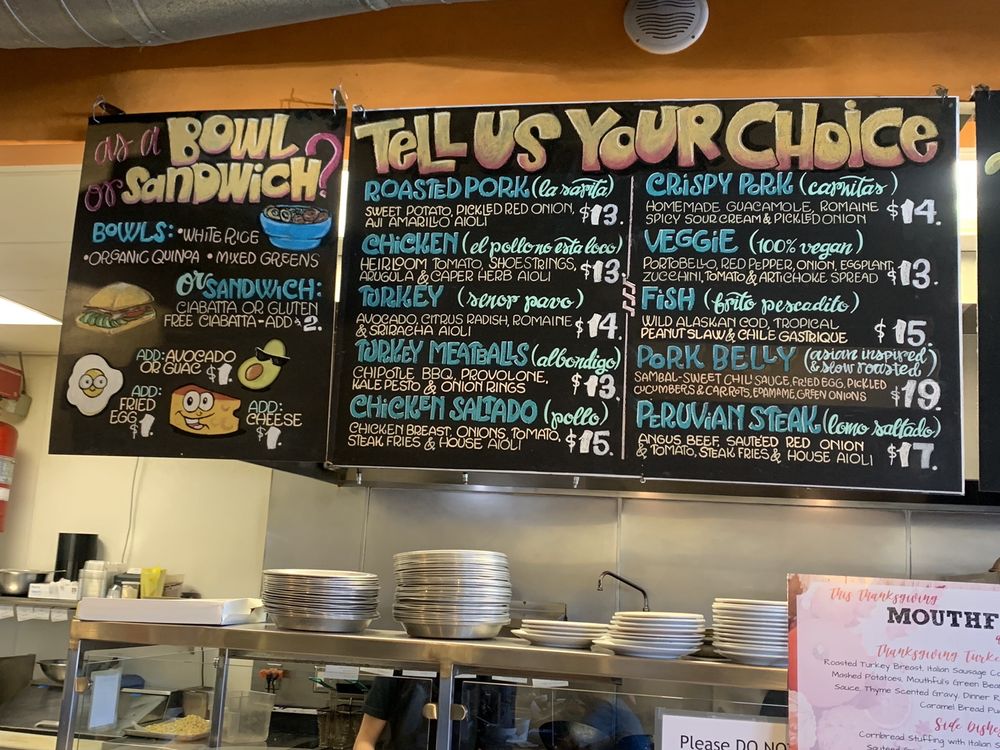 as a BOWL
or SANDWICH?
BOWLS: • WHITE RICE
• ORGANIC QUINOA • MIXED GREENS
Or SANDWICH:
CIABATTA OR GLUTEN
FREE CIABATTA - ADD $2.
ADD: AVOCADO
OR GUAC $1.
ADD:
FRIED
EGG $1
ADD:
CHEESE
$1
TELL US YOUR CHOICE
ROASTED PORK (la sarita)
SWEET POTATO, PICKLED RED ONION,
AJI AMARILLO AIOLI $13.
CHICKEN (el pollo no esta loco)
HEIRLOOM TOMATO, SHOESTRINGS,
ARUGULA & CAPER HERB AIOLI $13.
TURKEY (senor pavo)
AVOCADO, CITRUS RADISH, ROMAINE
& SRIRACHA AIOLI $14.
TURKEY MEATBALLS (albondigo)
CHIPOTLE BBQ, PROVOLONE,
KALE PESTO & ONION RINGS $13.
CHICKEN SALTADO (pollo)
CHICKEN BREAST, ONIONS, TOMATO,
STEAK FRIES & HOUSE AIOLI $15.
CRISPY PORK (carnitas)
HOMEMADE GUACAMOLE, ROMAINE
SPICY SOUR CREAM & PICKLED ONION $14.
VEGGIE (100% vegan)
PORTOBELLO, RED PEPPER, ONION, EGGPLANT,
ZUCCHINI, TOMATO & ARTICHOKE SPREAD $13.
FISH (frito pescadito)
WILD ALASKAN COD, TROPICAL
PEANUT SLAW & CHILE GASTRIQUE $15.
PORK BELLY (asian inspired
& slow roasted)
SAMBAL-SWEET CHILI SAUCE, FRIED EGG, PICKLED
CUCUMBERS & CARROTS, EDAMAME, GREEN ONIONS $19.
PERUVIAN STEAK (lomo saltado)
ANGUS BEEF, SAUTÉED RED ONION
& TOMATO, STEAK FRIES & HOUSE AIOLI $17.
This Thanksgiving
MOUTHF
Thanksgiving Turke
Roasted Turkey Breast, Italian Sausage Co
Mashed Potatoes, Mouthful's Green Bea
Sauce, Thyme Scented Gravy, Dinner R
Caramel Bread Pu
Side Dish
Cornbread Stuffing with Italian
Please DO NO